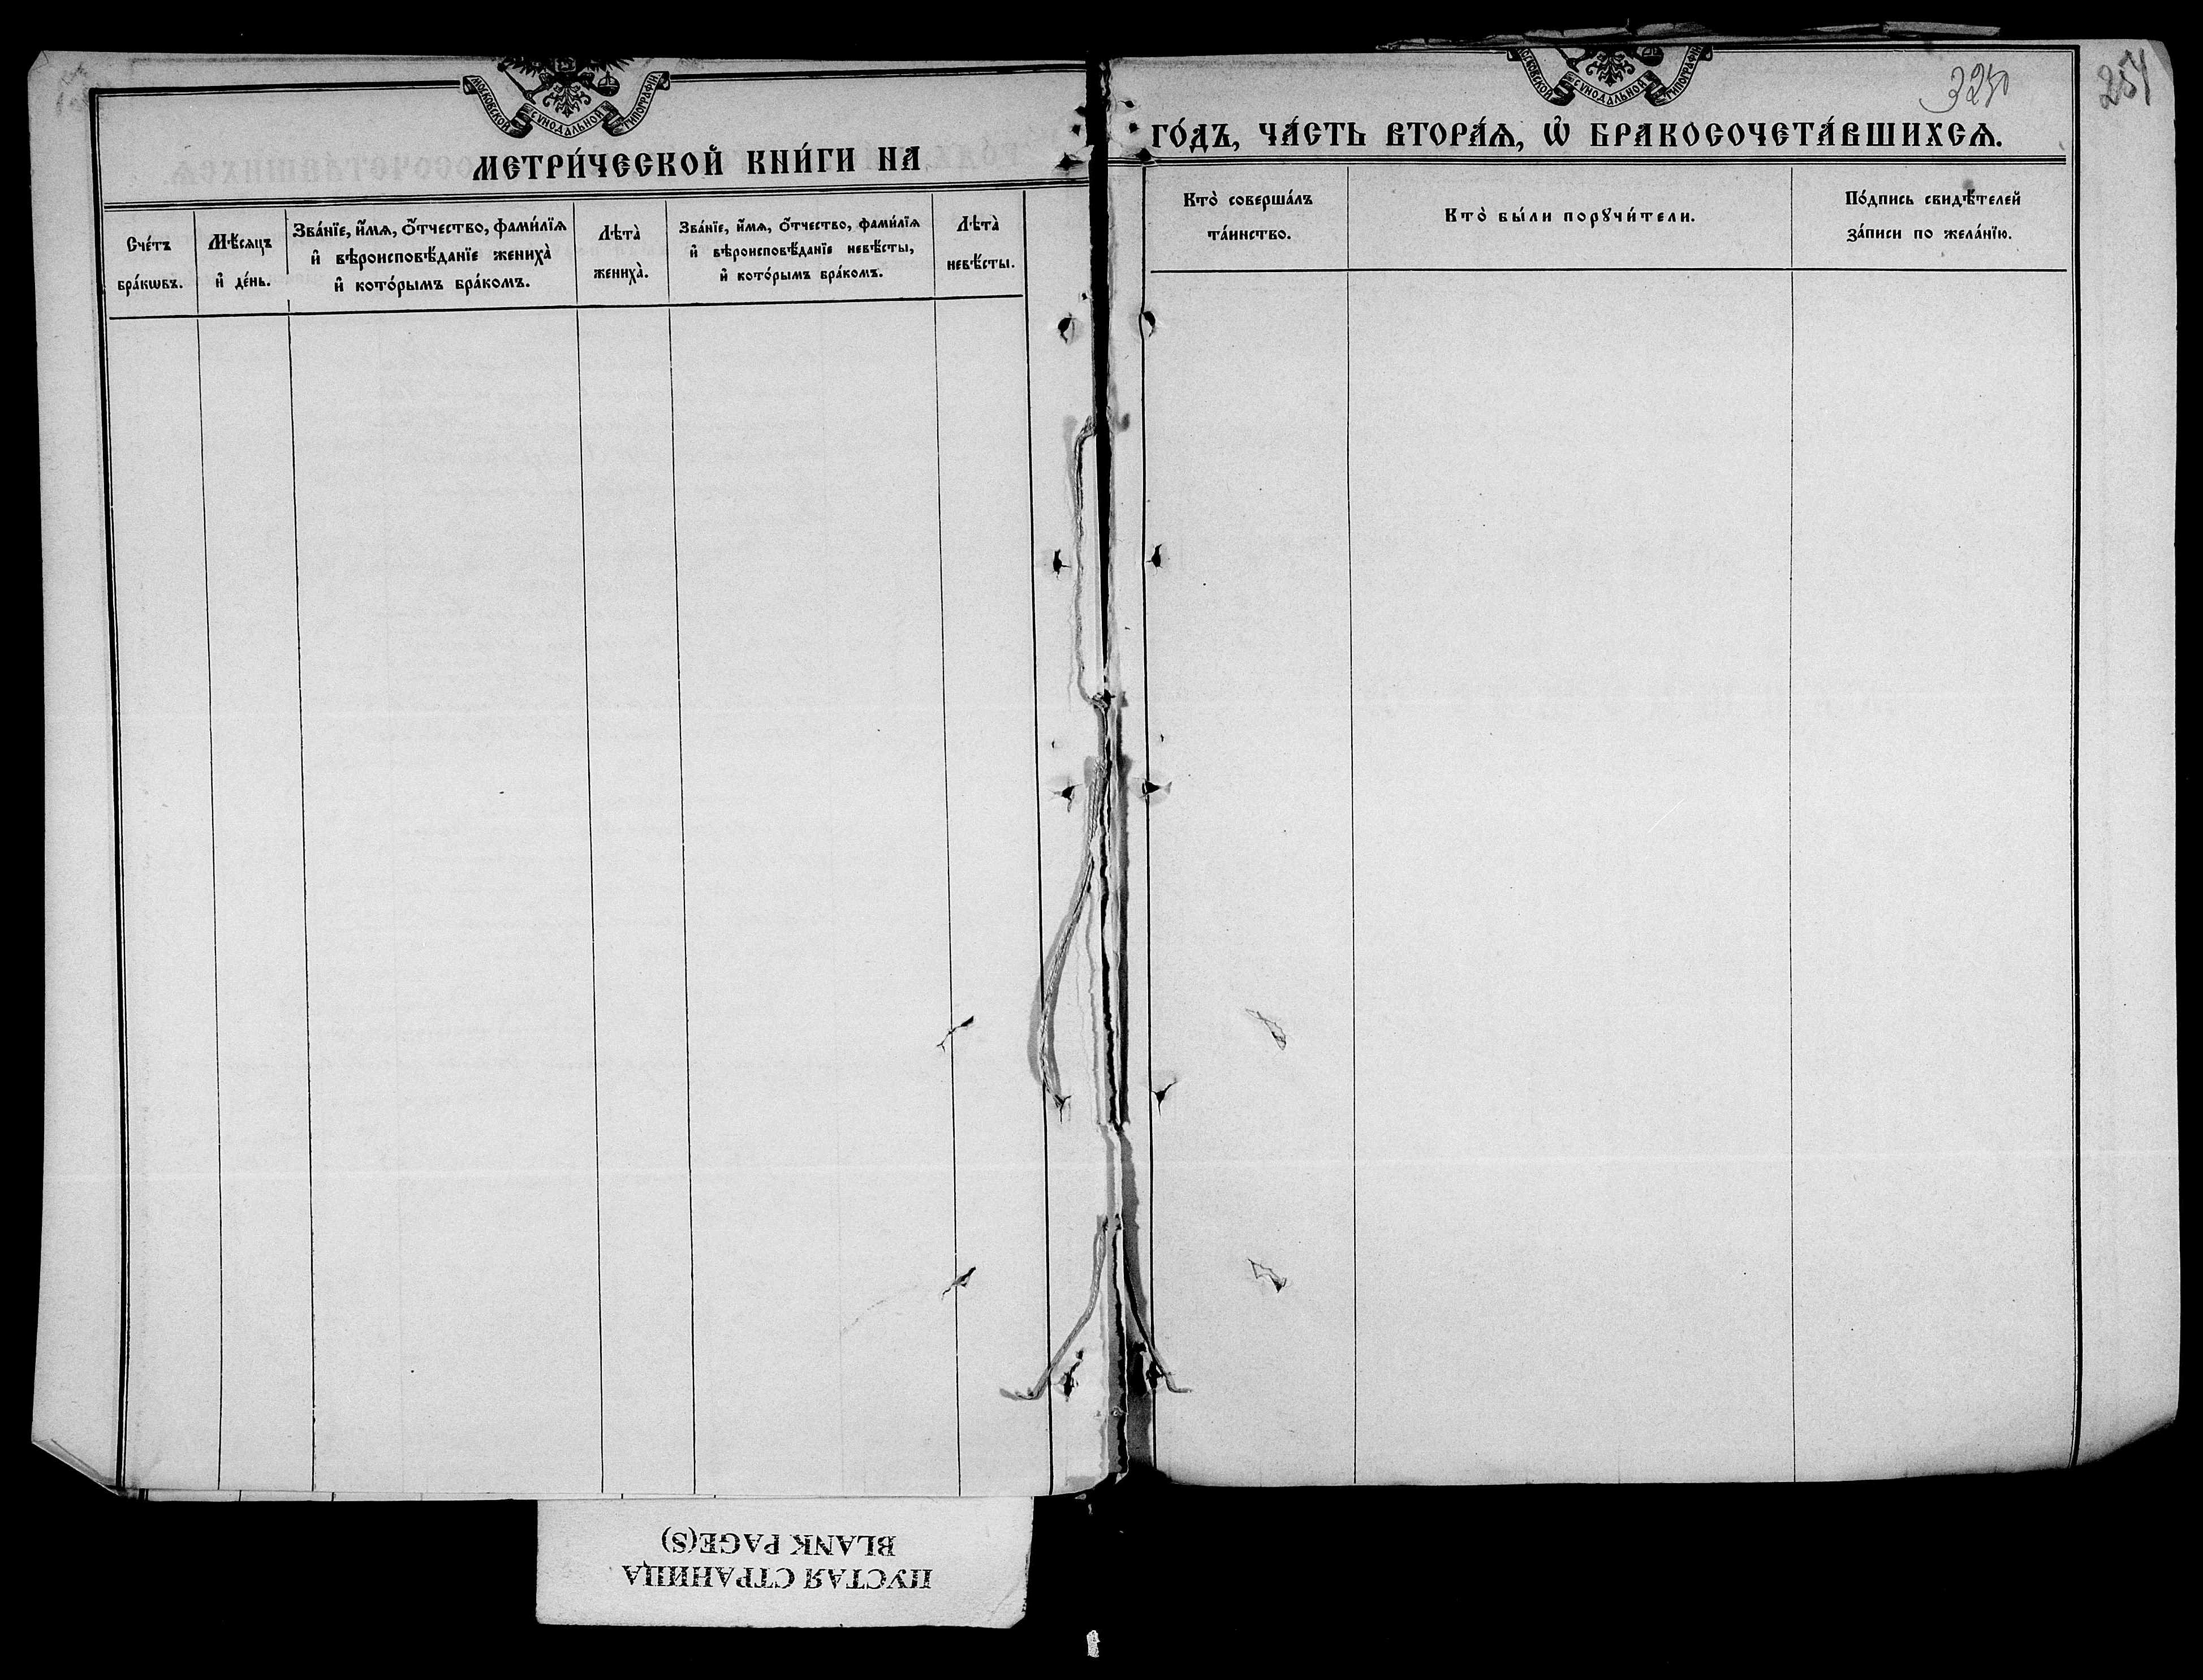 МОСКОВСКОЙ СѴНОДАЛЬНОЙ ТИПОГРАФІИ
МЕТРИ́ЧЕСКОЙ КНИ́ГИ НА
Сче́тъ
бра́кѡвъ.
Мѣ́сяцъ
и҆ де́нь.
Зва́нїе, и҆́мѧ, ѻ҆́тчество, фами́лїѧ
и҆ вѣроисповѣ́данїе жениха̀
и҆ кото́рымъ бра́комъ.
Лѣта̀
жениха̀.
Зва́нїе, и҆́мѧ, ѻ҆́тчество, фами́лїѧ
и҆ вѣроисповѣ́данїе невѣ́сты,
и҆ кото́рымъ бра́комъ.
Лѣта̀
невѣ́сты.
МОСКОВСКОЙ СѴНОДАЛЬНОЙ ТИПОГРАФІИ
257
ГО́ДЪ, ЧА́СТЬ ВТОРА́Ѧ, Ѽ БРАКОСОЧЕТА́ВШИХСѦ.
Кто̀ соверша́лъ
та́инство.
Кто̀ бы́ли порꙋчи́тели.
По́дпись свидѣ́телей
за́писи по жела́нїю.
ПУСТАЯ СТРАНИЦА
BLANK PAGE(S)